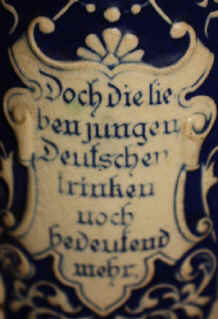 Doch die lie
ben jungen
Deutschen
trinken
noch
bedeutend
mehr.